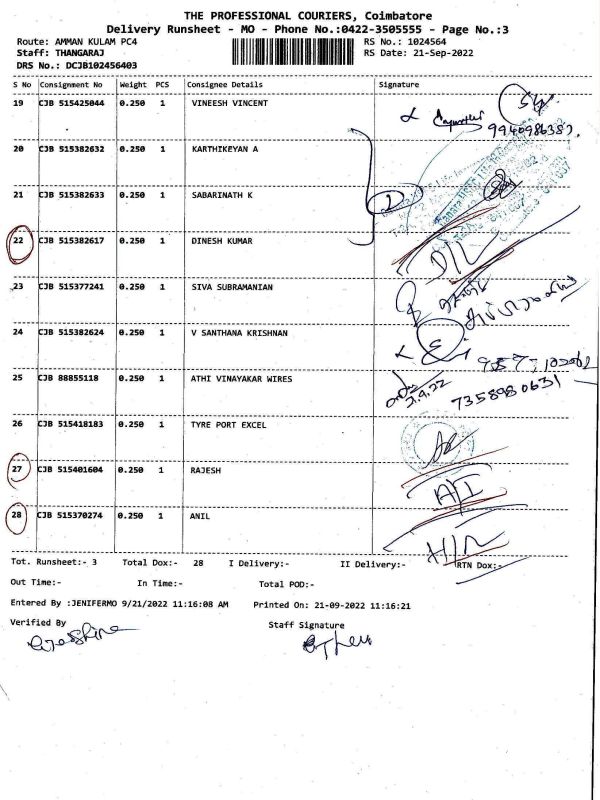 THE PROFESSIONAL COURIERS, Coimbatore
Delivery Runsheet - MO - Phone No.:0422-3505555 - Page No.:3
Route: AMMAN KULAM PC4 RS No.: 1024564
Staff: THANGARAJ RS Date: 21-Sep-2022
DRS No.: DCJB102456403
S No Consignment No Weight PCS Consignee Details Signature
19 CJB 515425044 0.250 1 VINEESH VINCENT
9940986387
20 CJB 515382632 0.250 1 KARTHIKEYAN A
21 CJB 515382633 0.250 1 SABARINATH K
22 CJB 515382617 0.250 1 DINESH KUMAR D/L
23 CJB 515377241 0.250 1 SIVA SUBRAMANIAN
24 CJB 515382624 0.250 1 V SANTHANA KRISHNAN
25 CJB 88855118 0.250 1 ATHI VINAYAKAR WIRES 7358980631
26 CJB 515418183 0.250 1 TYRE PORT EXCEL
27 CJB 515401604 0.250 1 RAJESH
28 CJB 515370274 0.250 1 ANIL
Tot. Runsheet:- 3 Total Dox:- 28 I Delivery:- II Delivery:- RTN Dox:-
Out Time:- In Time:- Total POD:-
Entered By :JENIFERMO 9/21/2022 11:16:08 AM Printed On: 21-09-2022 11:16:21
Verified By Staff Signature